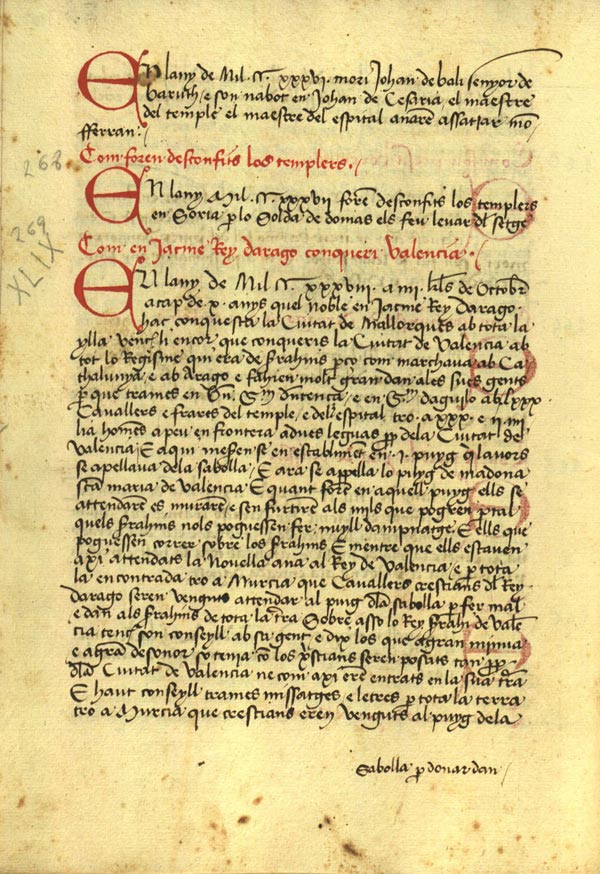 En lany de Mil .CC. xxxvi. mori Johan de bali senyor de
baruth, e son nabot en Johan de Cesaria, el maestre
del temple el maestre del espital anarē assatiar mō
fferran:
Com foren desconfits los templers.
268
En lany Mil .CC. xxxvii forē desconfits los templers
en Soria p lo Solda de domas els feu levar dl setge
269
XLIX
Com en Jacme Rey darago conqueri valencia.
En lany de Mil .CC. xxxviii. a mi. kls de Octobr
a cap de .x. anys quel noble en Jacme Rey darago
hac conquesta la Ciutat de Mallorques ab tota la
ylla vench li en cor, que conqueris la Ciutat de valencia ab
tot lo Regisme qui era de frahins pço com marchava ab Ca
thalunya, e ab Arago e fahien molt gran dan a les sues gents
p que trames en Bn. Gm dentença, e en Gm daguilo ab lxxx.
Cavallers e frares del temple, e del espital tro a xxx. e ii. mi
lia homēs a peu en frontera a dues leguas pp de la Ciutat de
valencia, E aqui mesēn se en establimēt en .i. puyg q lavors
se apellava de la sabolla, E ara se appella lo puyg de madona
scā maria de valencia E quant forē en aquell puyg ells se
attendarē es murarē, e sen furtirē als mils que pogren p tal
quels frahins nols poguessen fer, nuyll dampnatge. E ells que
poguessen correr sobre los frahins E mentre que ells estaven
axi attendats la Novella ana al Rey de Valencia, e p tota
la encontrada tro a Murcia que Cavallers crestians dl Rey
darago seren venguts attendar al puig dla sabolla p fer mal
e dan als frahins de tota la trā Sobre asso lo Rey frahi de valē
cia tench son conseyll ab sa gent e dix los que a gran minua
e a gran desonor so tenia co los xpstians seren posats tan pp
dla Ciutat de valencia ne com axi erē entrats en la sua trā
E haut conseyll trames missatges e letres p tota la terra
tro a Murcia que crestians eren venguts al puyg de la
Sabolla p donar dan